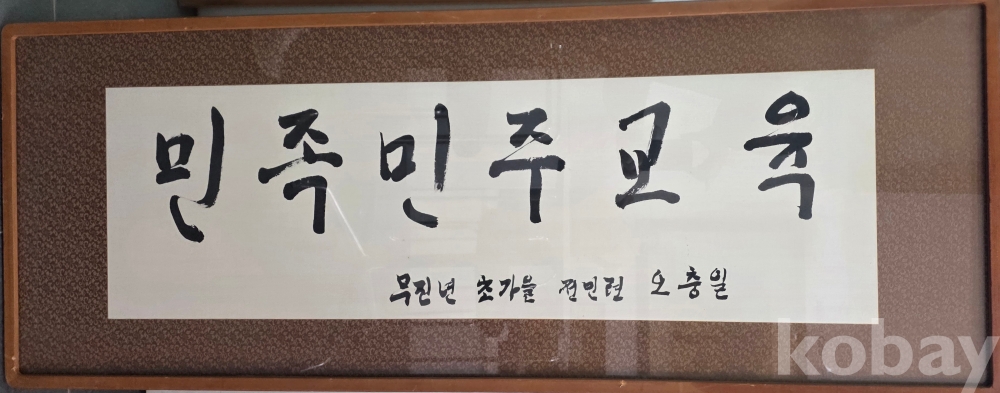 민족민주교육
무진년 초가을 전민련 오충일
kobay